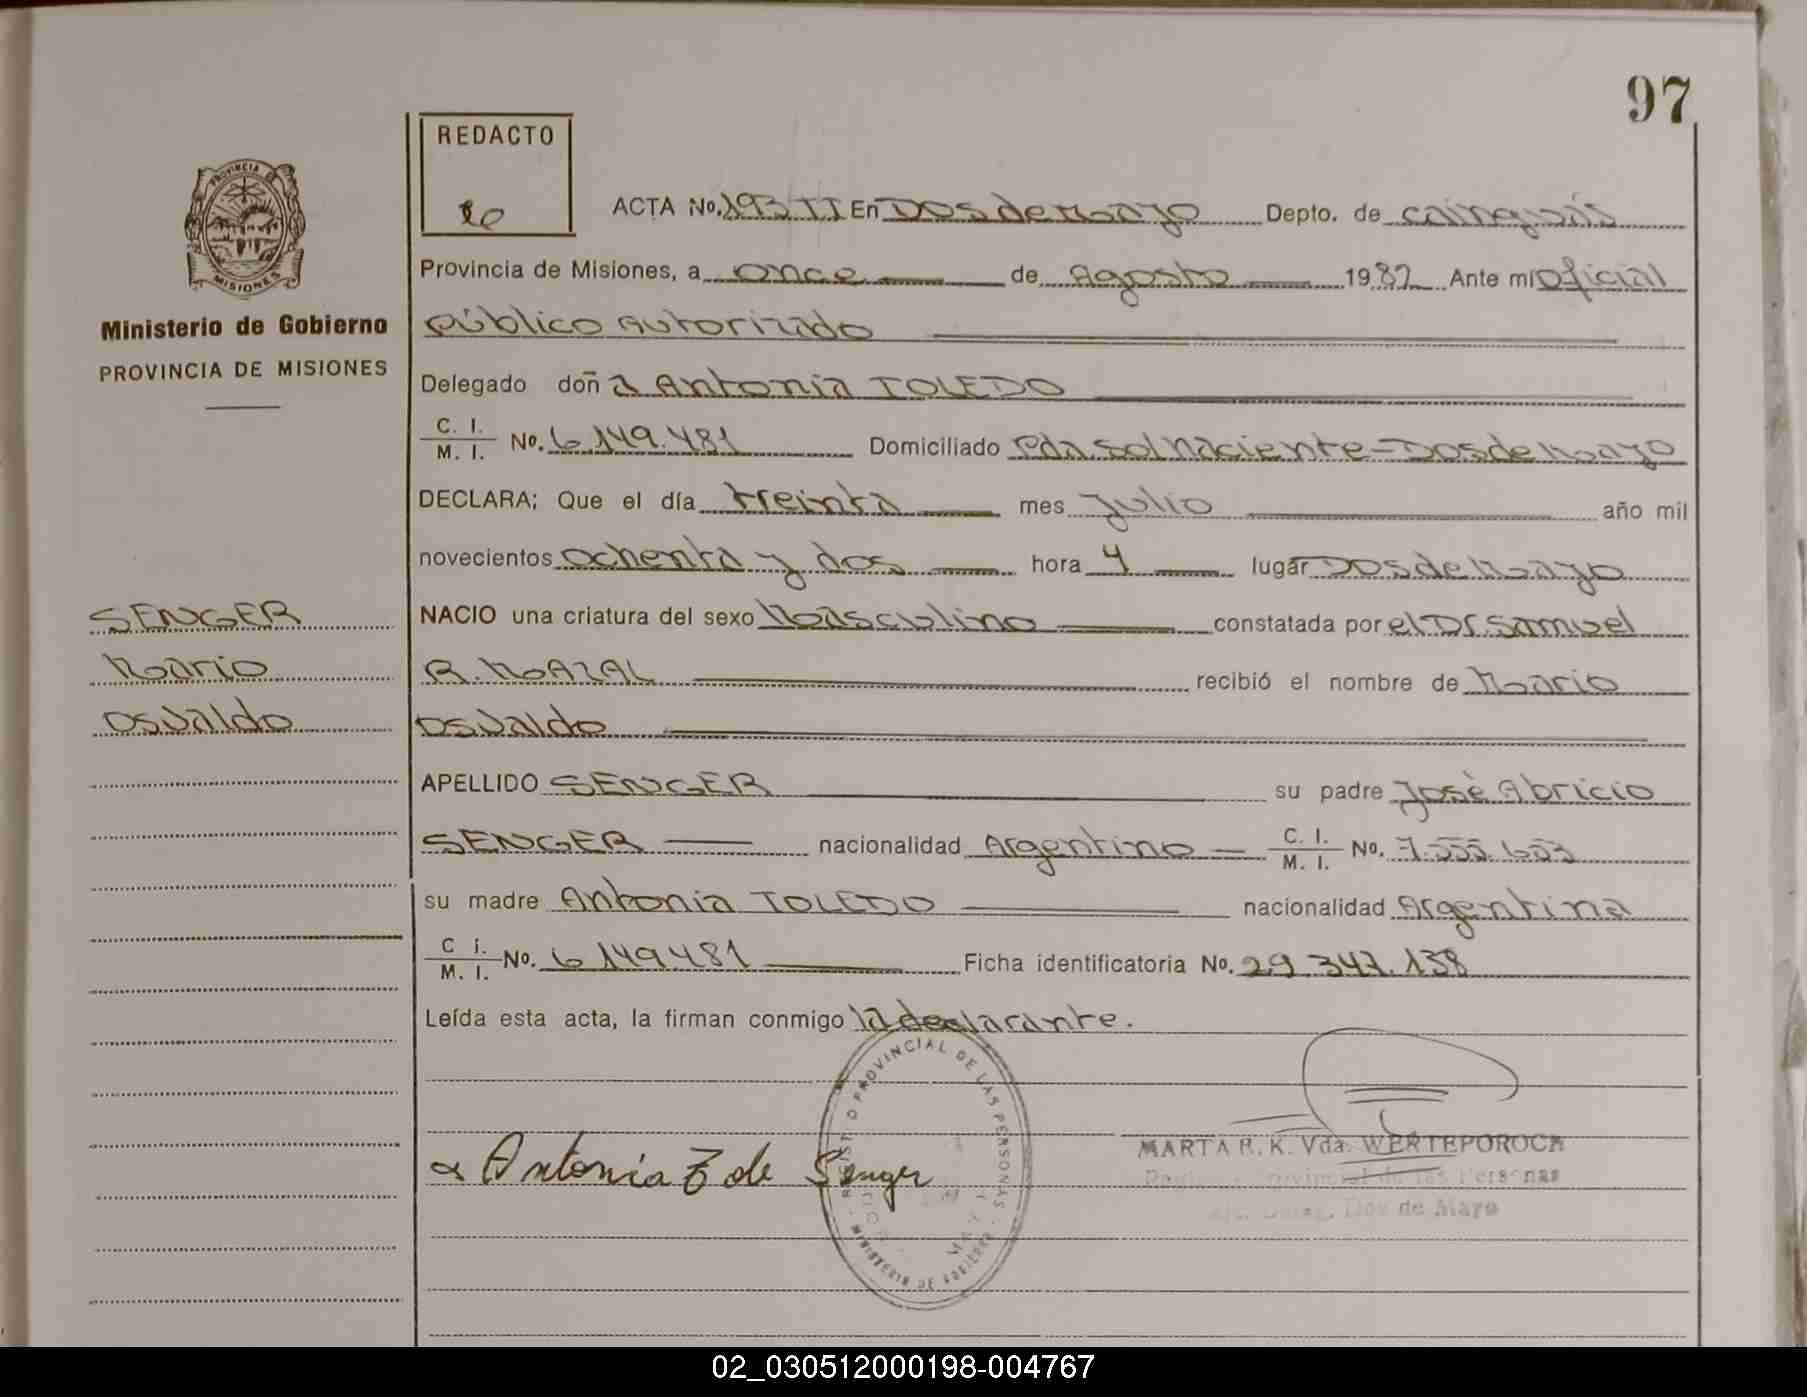 97
REDACTO
ACTA No. 193 II En DosdeMayo Depto. de Cainguás
PROVINCIA DE MISIONES
Provincia de Misiones, a once de Agosto 1982 Ante mí Oficial
Ministerio de Gobierno
Público Autorizado
PROVINCIA DE MISIONES
Delegado doña Antonia TOLEDO
C. I. M. I. No. 6.149.481 Domiciliado Pda. Sol Naciente-DosdeMayo
DECLARA; Que el día treinta mes Julio año mil
novecientos ochenta y dos hora 4 lugar DosdeMayo
SENGER
NACIO una criatura del sexo Masculino constatada por el Dr. Samuel
Mario
R. MAZAL recibió el nombre de Mario
Osvaldo
Osvaldo
APELLIDO SENGER su padre José Abricio
SENGER nacionalidad Argentino C. I. M. I. No.
su madre Antonia TOLEDO nacionalidad Argentina
C I. M. I. No. 6149.481 Ficha identificatoria No. 29.347.138
Leída esta acta, la firman conmigo la declarante.
REGISTRO PROVINCIAL DE LAS PERSONAS
MINISTERIO DE GOBIERNO
Antonia T de Senger
MARTA R. K. Vda. WERTEPOROCH
Provincial de las Personas
Deleg. Dos de Mayo
02_030512000198-004767